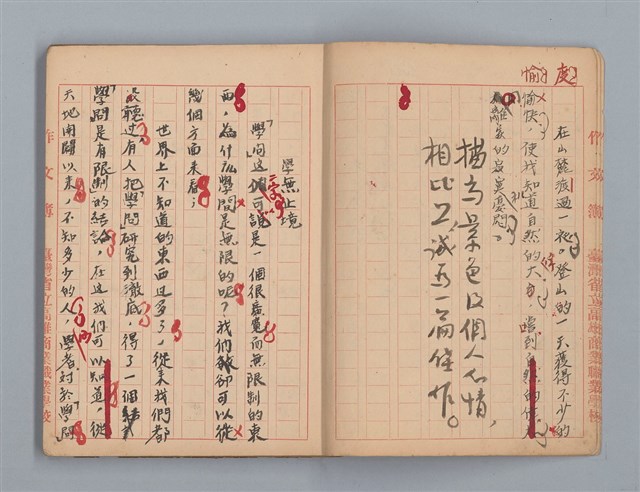 在山麓痕過一夜。登山的一天獲得不少的
愉快,使我知道自然的大自
離家的寂寞憂悶。
描寫景色及個人心情,
相比又誠正一篇佳作。
作文簿 臺灣省立高雄商業職業學校
學無止境
「學問」這個可說是一個很長寬而無限制的東
西,為什麼學問是無限的呢?我們卻可以從
幾個方面來看;
世界上不知道的東西过多了,從来我們都
沒聽过有人把「學問」研究到徹底,得了一個結
「學問」是有限制的結論,在这我們可以知道,從
天地開闢以来,不知多少的人,學者討於「學問」
作文簿 臺灣省立高雄商業職業學校